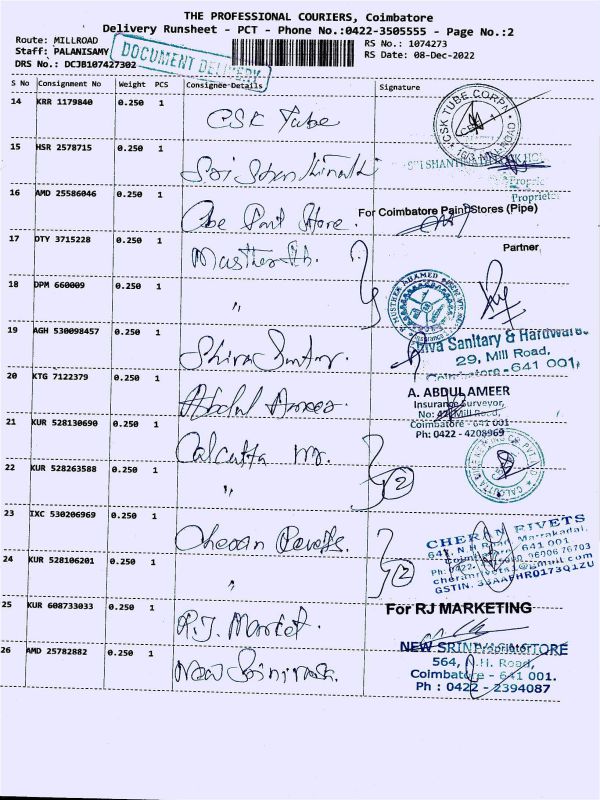 THE PROFESSIONAL COURIERS, Coimbatore
Delivery Runsheet - PCT - Phone No.:0422-3505555 - Page No.:2
Route: MILLROAD
RS No.: 1074273
Staff: PALANISAMY
RS Date: 08-Dec-2022
DRS No.: DCJB107427302
DOCUMENT DELIVERY
S No Consignment No Weight PCS Consignee Details Signature
14 KRR 1179840 0.250 1 CSK Tube
CSK TUBE CORPN
15 HSR 2578715 0.250 1
Proprietor
16 AMD 25586046 0.250 1
For Coimbatore Paint Stores (Pipe)
Partner
17 DTY 3715228 0.250 1
18 DPM 660009 0.250 1 "
19 AGH 530098457 0.250 1
Sanitary & Hardwares
29, Mill Road,
Coimbatore - 641 001
20 KTG 7122379 0.250 1 Abdul Ameer
A. ABDUL AMEER
Insurance Surveyor,
Mill Road,
Coimbatore - 641 001
Ph: 0422 - 4208969
21 KUR 528130690 0.250 1 Calcutta
22 KUR 528263588 0.250 1 " 2
23 IXC 530206969 0.250 1 Cheran Rivets.
CHERAN RIVETS
Coimbatore - 641 001
24 KUR 528106201 0.250 1 " 2
GSTIN. 33AAFHR0173Q1ZU
25 KUR 608733033 0.250 1 R.J. Market.
For RJ MARKETING
Proprietor
26 AMD 25782882 0.250 1 New Srinivasa.
564, N.H. Road,
Coimbatore - 641 001.
Ph : 0422 - 2394087